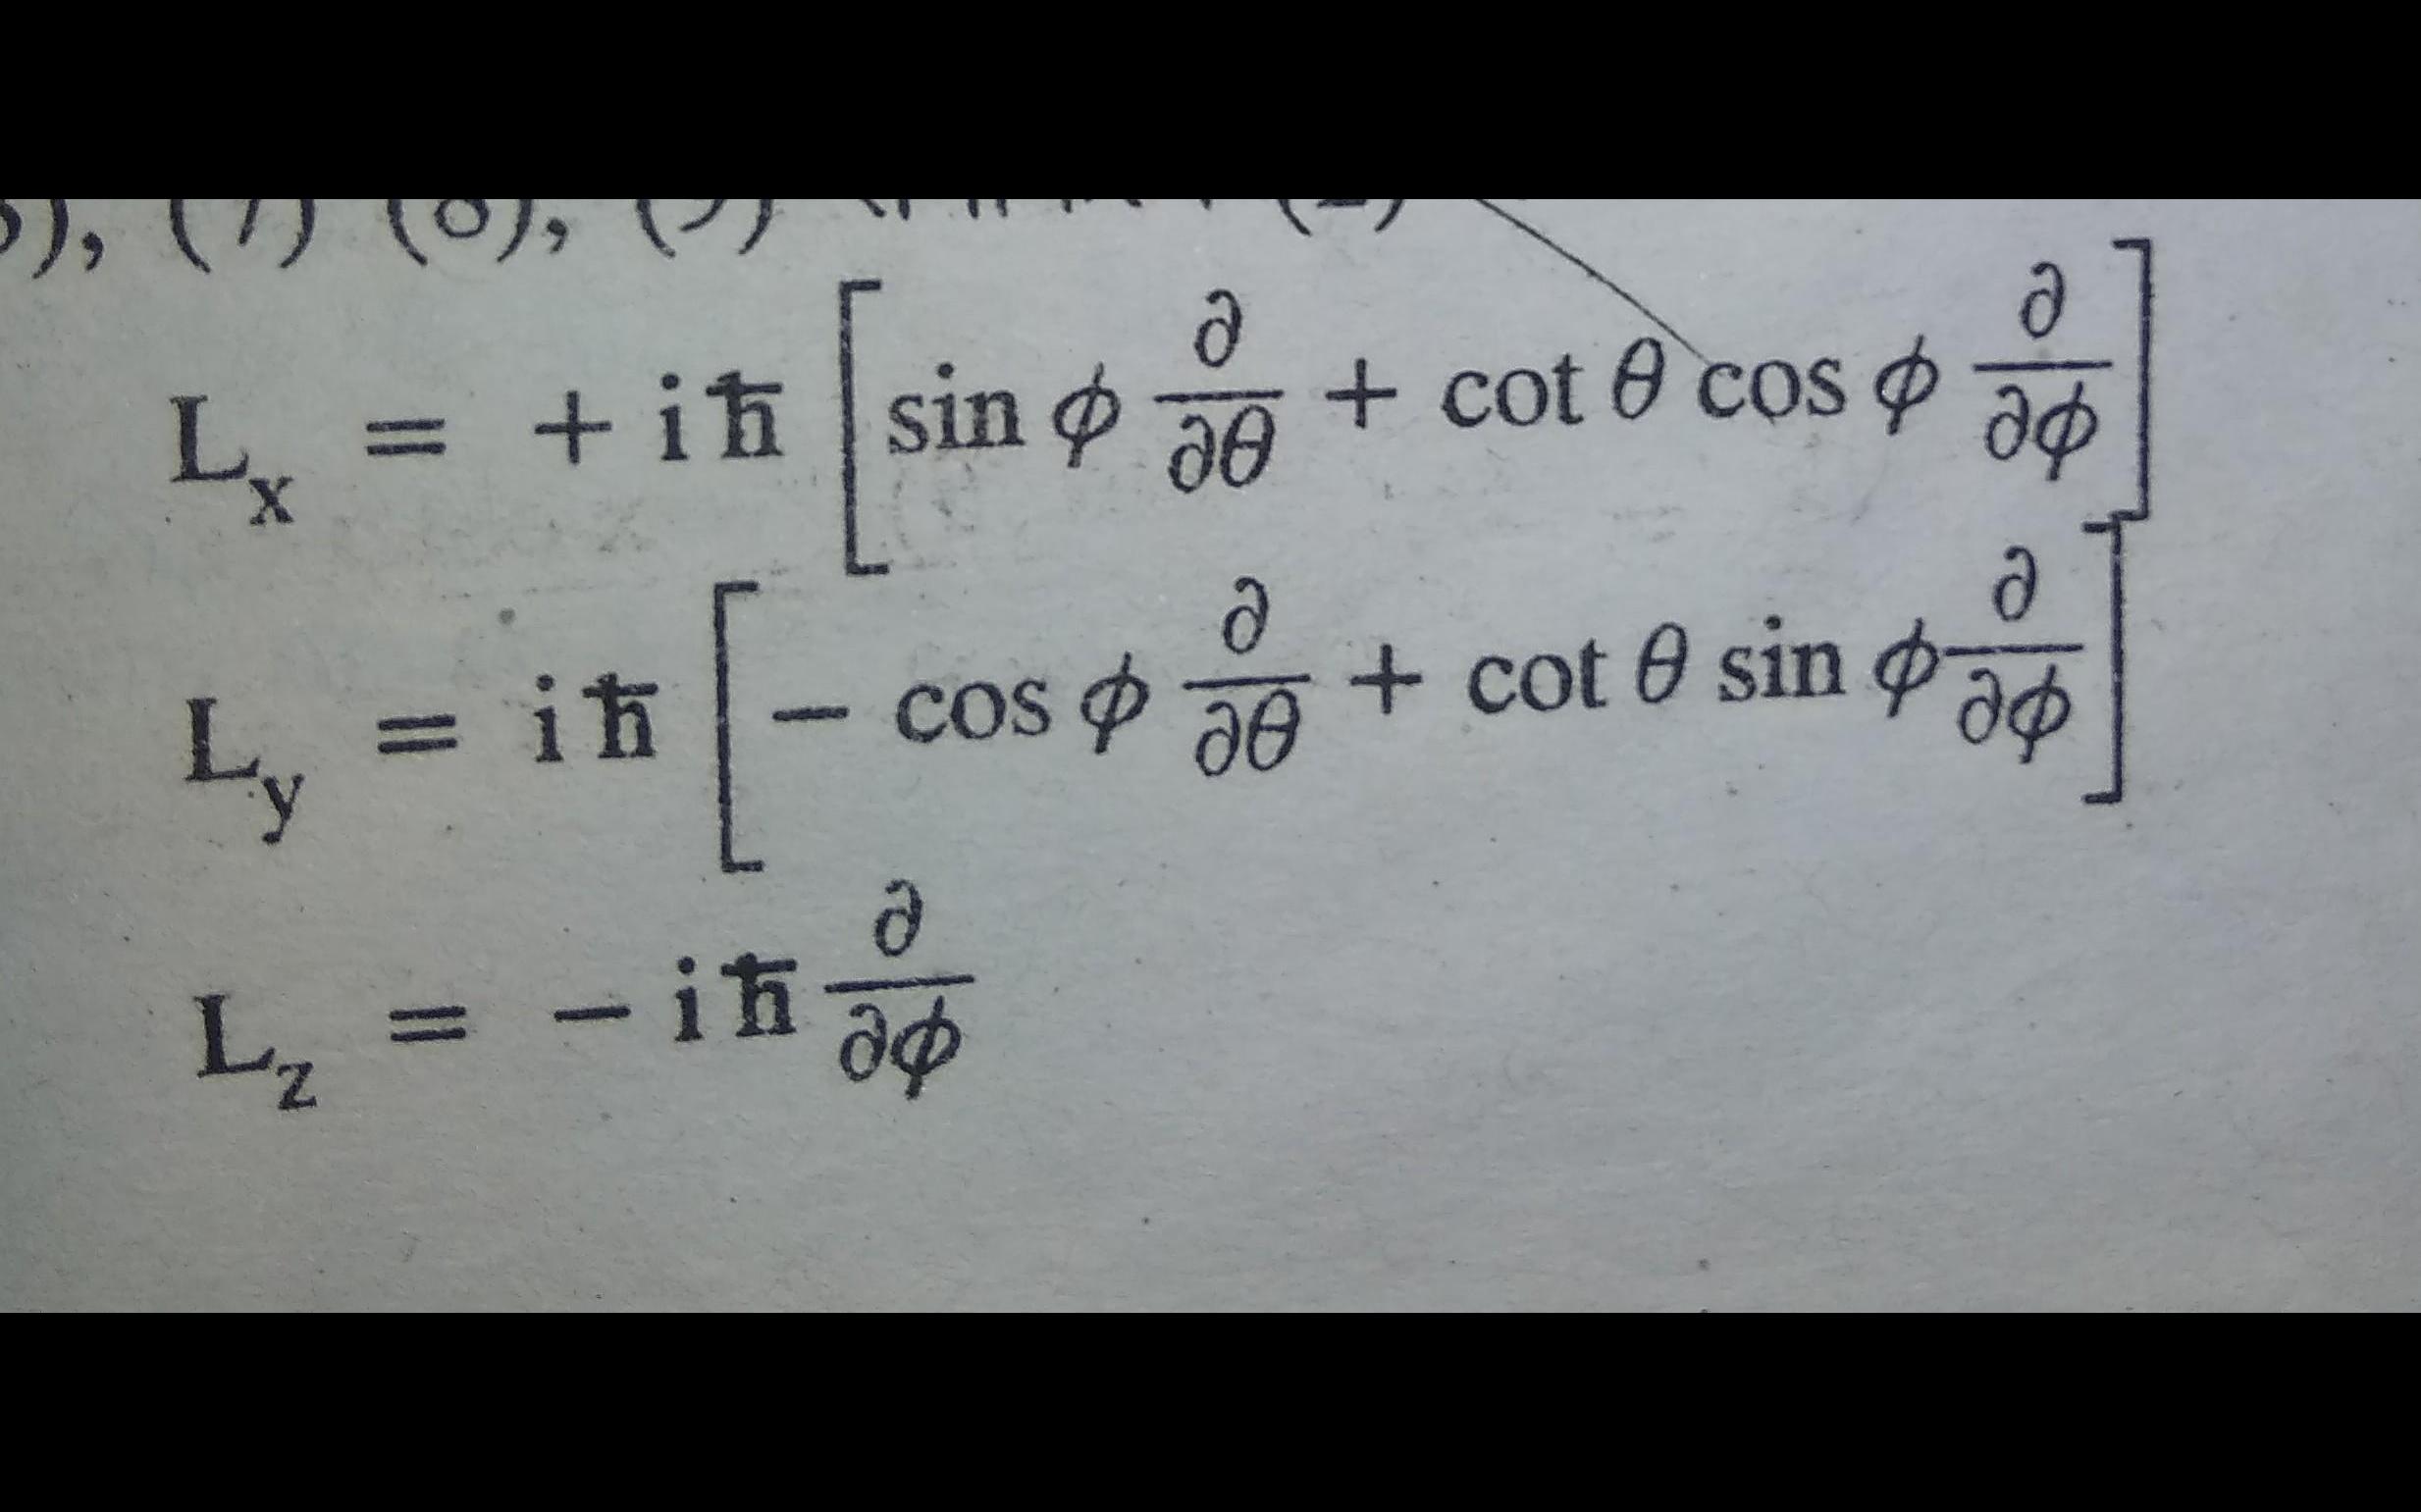 (7) (8), (9)
L_x = + i ħ [ sin ϕ ∂/∂θ + cot θ cos ϕ ∂/∂ϕ ]
L_y = i ħ [ − cos ϕ ∂/∂θ + cot θ sin ϕ ∂/∂ϕ ]
L_z = − i ħ ∂/∂ϕ